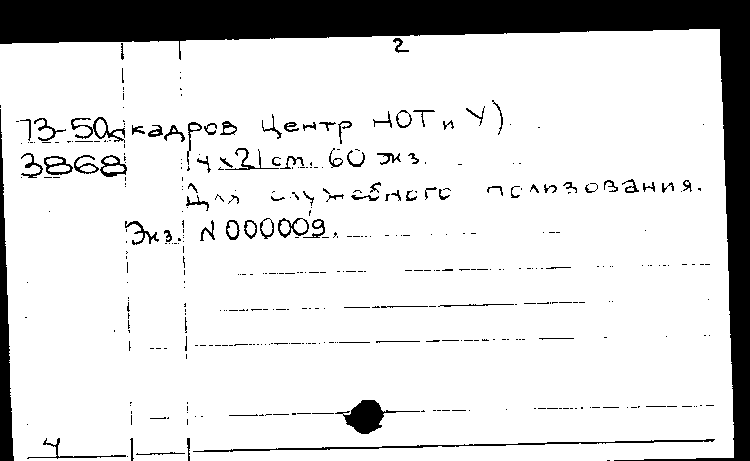 2
73-50с кадров Центр НОТ и У)
3868 14х21 см. 60 экз.
Для служебного пользования.
Экз. N 000009.
4